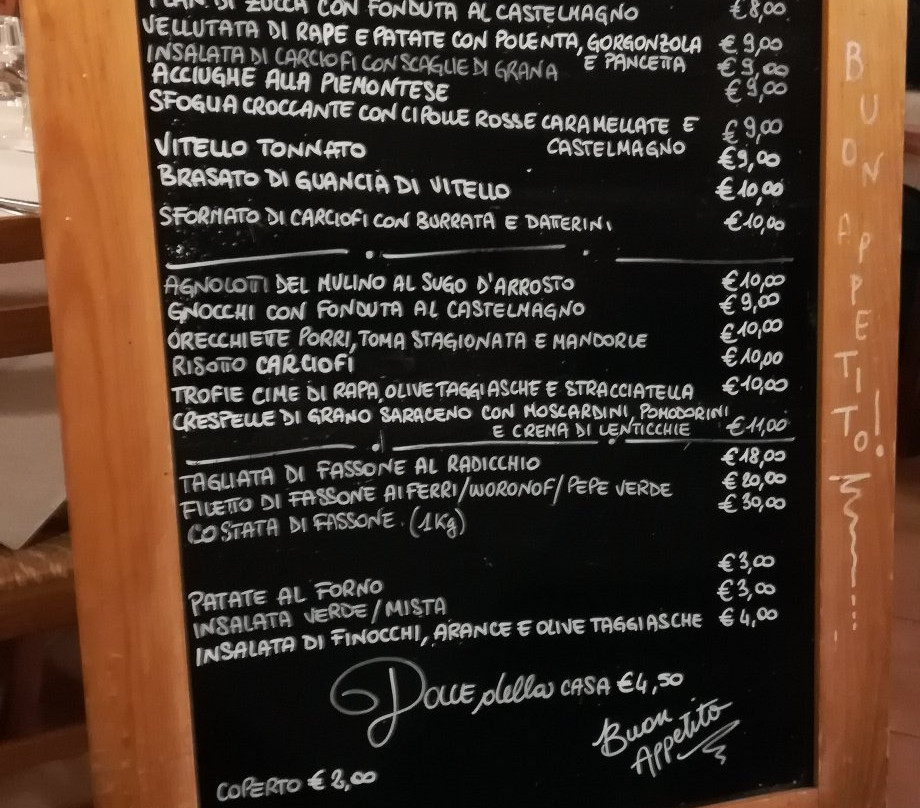 FLAN DI ZUCCA CON FONDUTA AL CASTELMAGNO €8,00
VELLUTATA DI RAPE E PATATE CON POLENTA, GORGONZOLA €9,00
E PANCETTA
INSALATA DI CARCIOFI CON SCAGLIE DI GRANA €9,00
ACCIUGHE ALLA PIEMONTESE €9,00
SFOGLIA CROCCANTE CON CIPOLLE ROSSE CARAMELLATE E €9,00
CASTELMAGNO
VITELLO TONNATO €9,00
BRASATO DI GUANCIA DI VITELLO €10,00
SFORMATO DI CARCIOFI CON BURRATA E DATTERINI €10,00
AGNOLOTTI DEL MULINO AL SUGO D'ARROSTO €10,00
GNOCCHI CON FONDUTA AL CASTELMAGNO €9,00
ORECCHIETTE PORRI, TOMA STAGIONATA E MANDORLE €10,00
RISOTTO CARCIOFI €10,00
TROFIE CIME DI RAPA, OLIVE TAGGIASCHE E STRACCIATELLA €10,00
CRESPELLE DI GRANO SARACENO CON MOSCARDINI, POMODORINI
E CREMA DI LENTICCHIE €11,00
TAGLIATA DI FASSONE AL RADICCHIO €18,00
FILETTO DI FASSONE AI FERRI/WORONOF/PEPE VERDE €20,00
COSTATA DI FASSONE. (1Kg) €30,00
PATATE AL FORNO €3,00
INSALATA VERDE/MISTA €3,00
INSALATA DI FINOCCHI, ARANCE E OLIVE TAGGIASCHE €4,00
Dolce della CASA €4,50
Buon
Appetito
COPERTO € 2,00
BUON APPETITO!